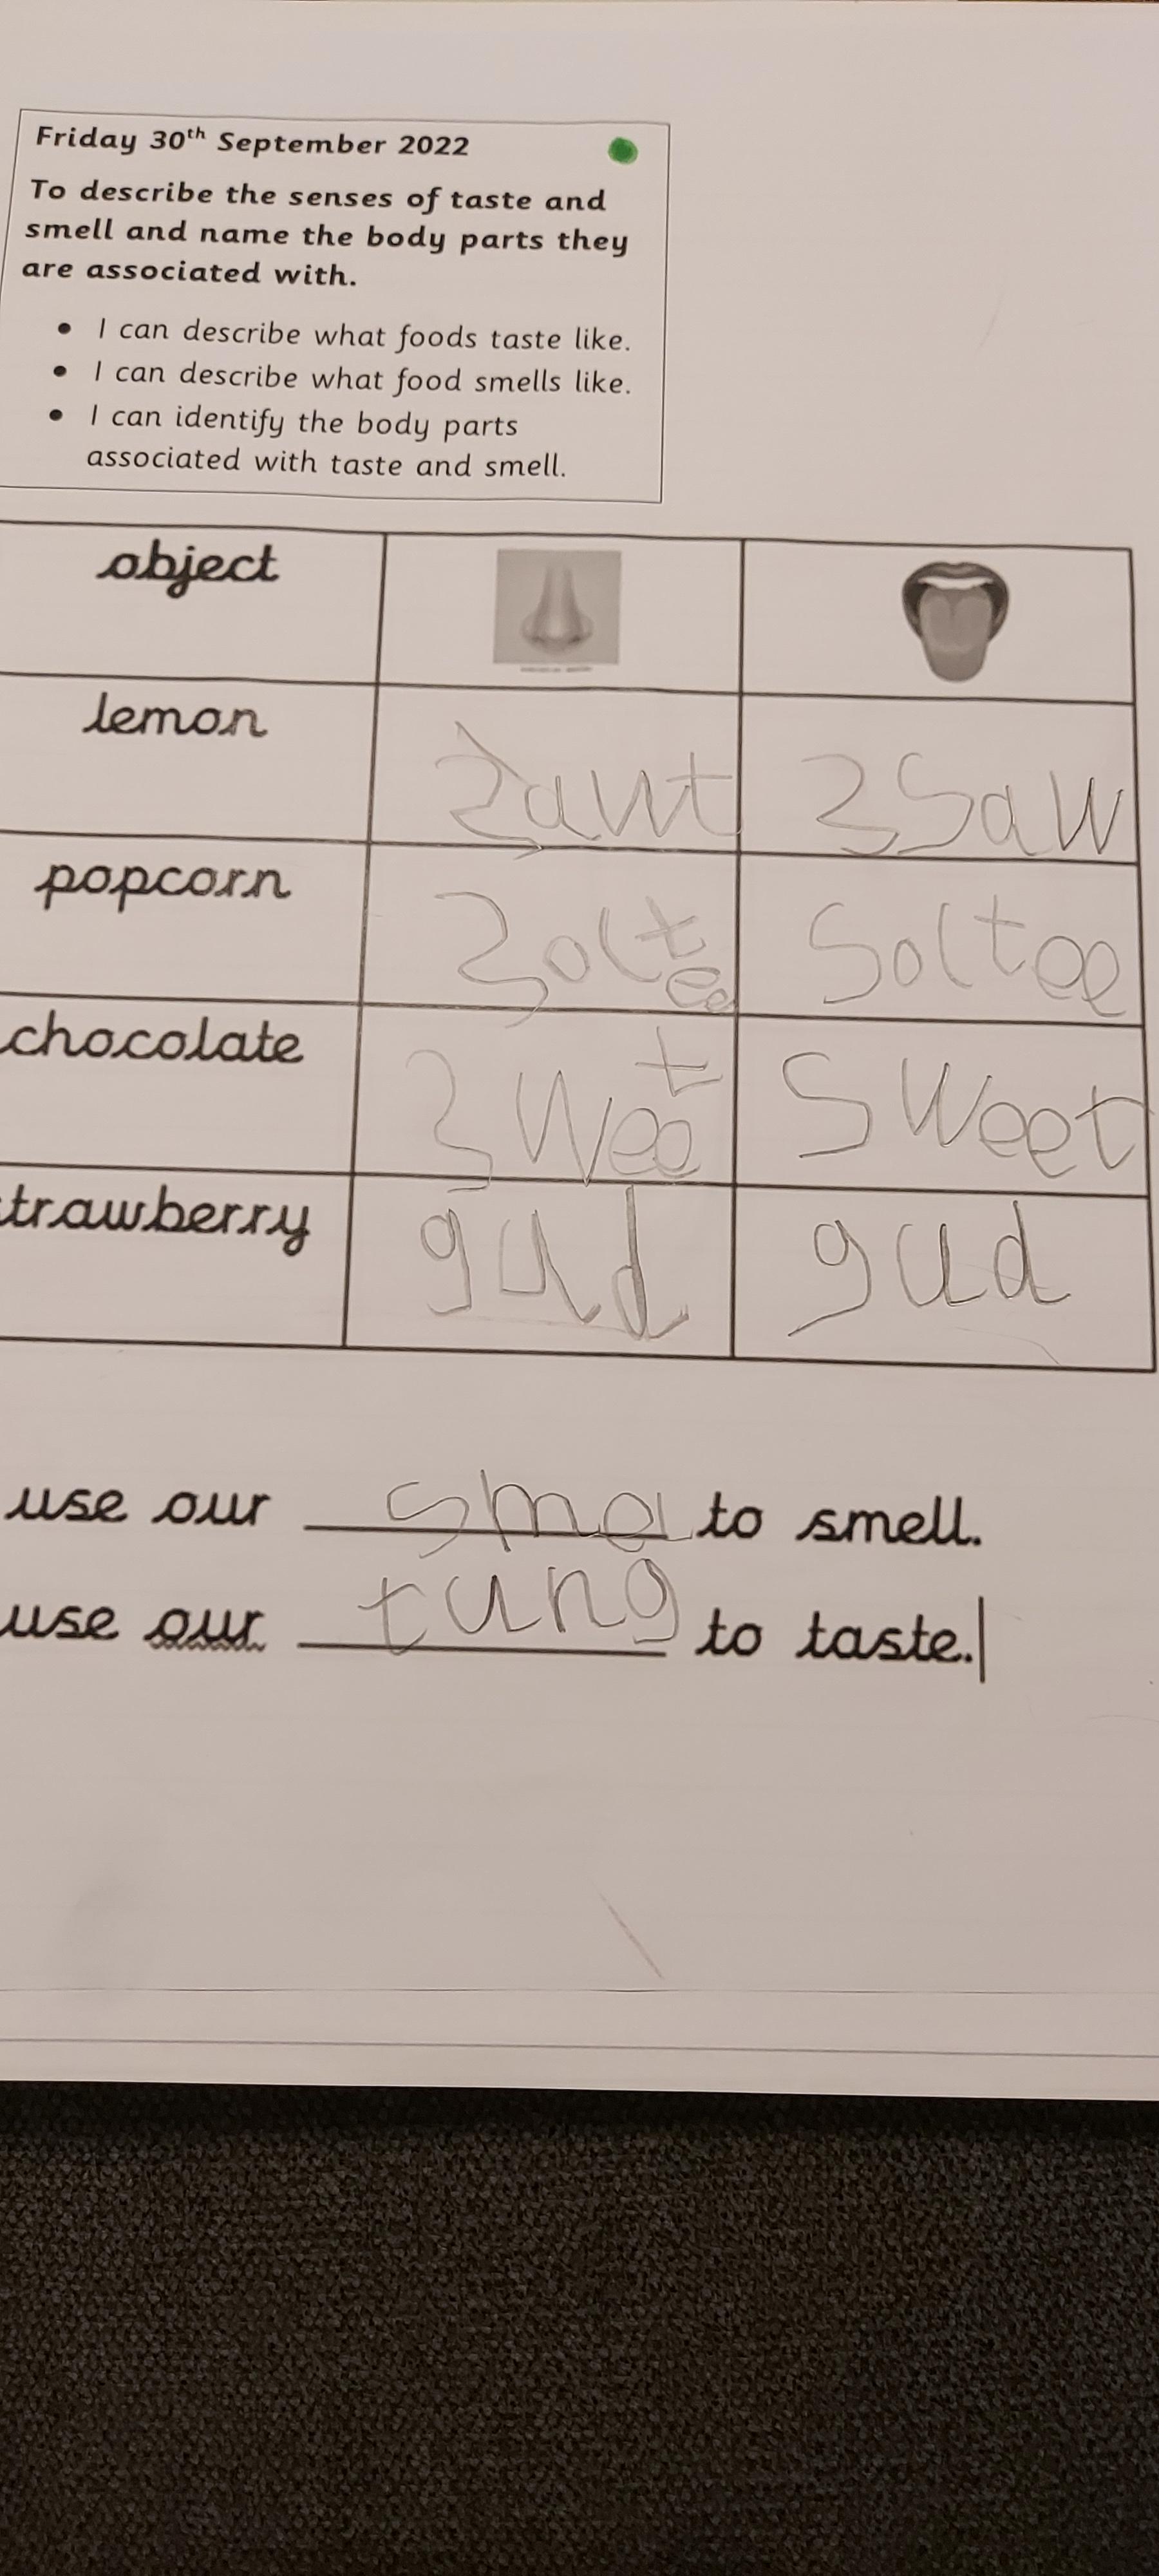 Friday 30th September 2022
To describe the senses of taste and
smell and name the body parts they
are associated with.
• I can describe what foods taste like.
• I can describe what food smells like.
• I can identify the body parts
associated with taste and smell.
object
lemon sawt ssaw
popcorn soltee soltee
chocolate sweet sweet
trawberry gud gud
use our smel to smell.
use our tung to taste.